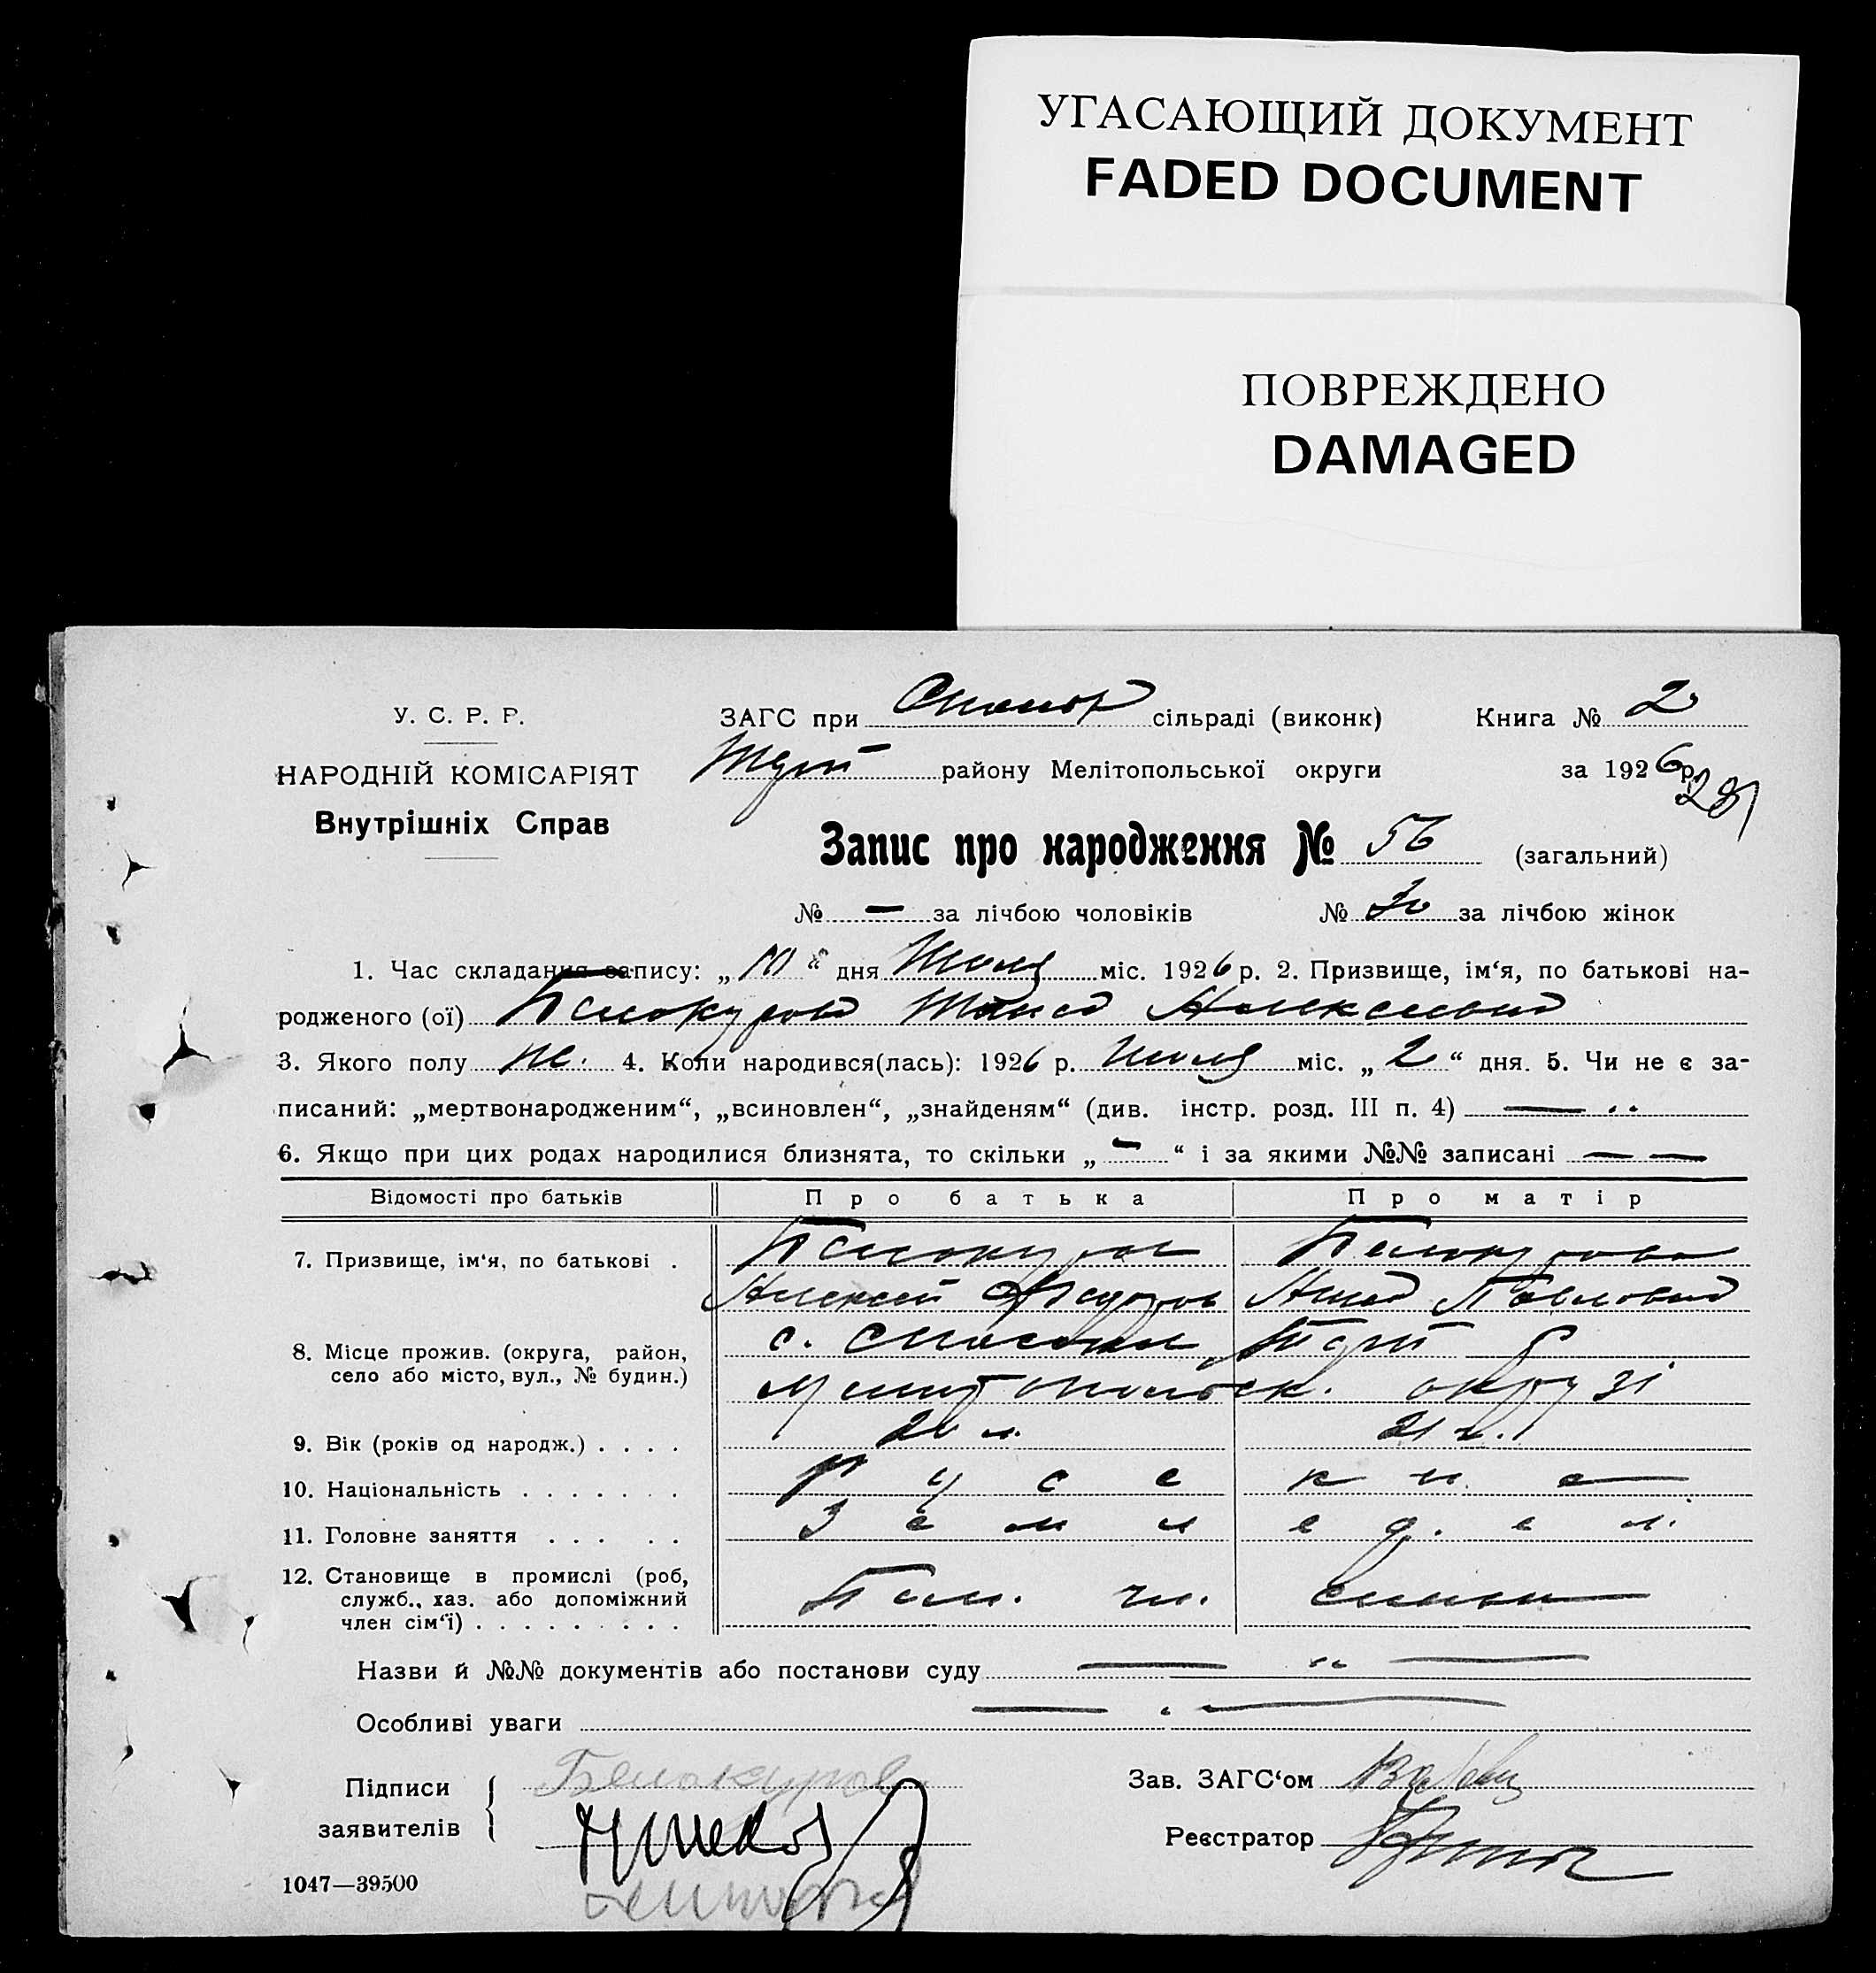 УГАСАЮЩИЙ ДОКУМЕНТ
FADED DOCUMENT
ПОВРЕЖДЕНО
DAMAGED
У. С. Р. Р.
НАРОДНІЙ КОМІСАРІЯТ
Внутрішніх Справ
ЗАГС при сільраді (виконк) Книга № 2
району Мелітопольської округи за 1926 р.
281
Запис про народження № 56 (загальний)
№ — за лічбою чоловіків № за лічбою жінок
1. Час складання запису: „10“ дня Июля міс. 1926 р. 2. Призвище, ім‘я, по батькові на-
родженого (ої) Белокурова Таиса Алексеевна
3. Якого полу ж. 4. Коли народився(лась): 1926 р. Июля міс. „2“ дня. 5. Чи не є за-
писаний: „мертвонародженим“, „всиновлен“, „знайденям“ (див. інстр. розд. III п. 4) —
6. Якщо при цих родах народилися близнята, то скільки „—“ і за якими №№ записані — —
Відомості про батьків Про батька Про матір
7. Призвище, ім‘я, по батькові . Белокуров Белокурова
Алексей Анна Павловна
8. Місце прожив. (округа, район, с.
село або місто, вул., № будин.) Мелитопольск. округи
9. Вік (років од народж.) . . . . 20 л. 21 г.
10. Національність . . . . . . . Русские
11. Головне заняття . . . . . Землед.
12. Становище в промислі (роб,
служб., хаз. або допоміжний чл. семьи
член сім‘ї) . . . . . . . . .
Назви й №№ документів або постанови суду — —
Особливі уваги — —
Підписи Белокуров Зав. ЗАГС‘ом
заявителів Реєстратор
1047—39500